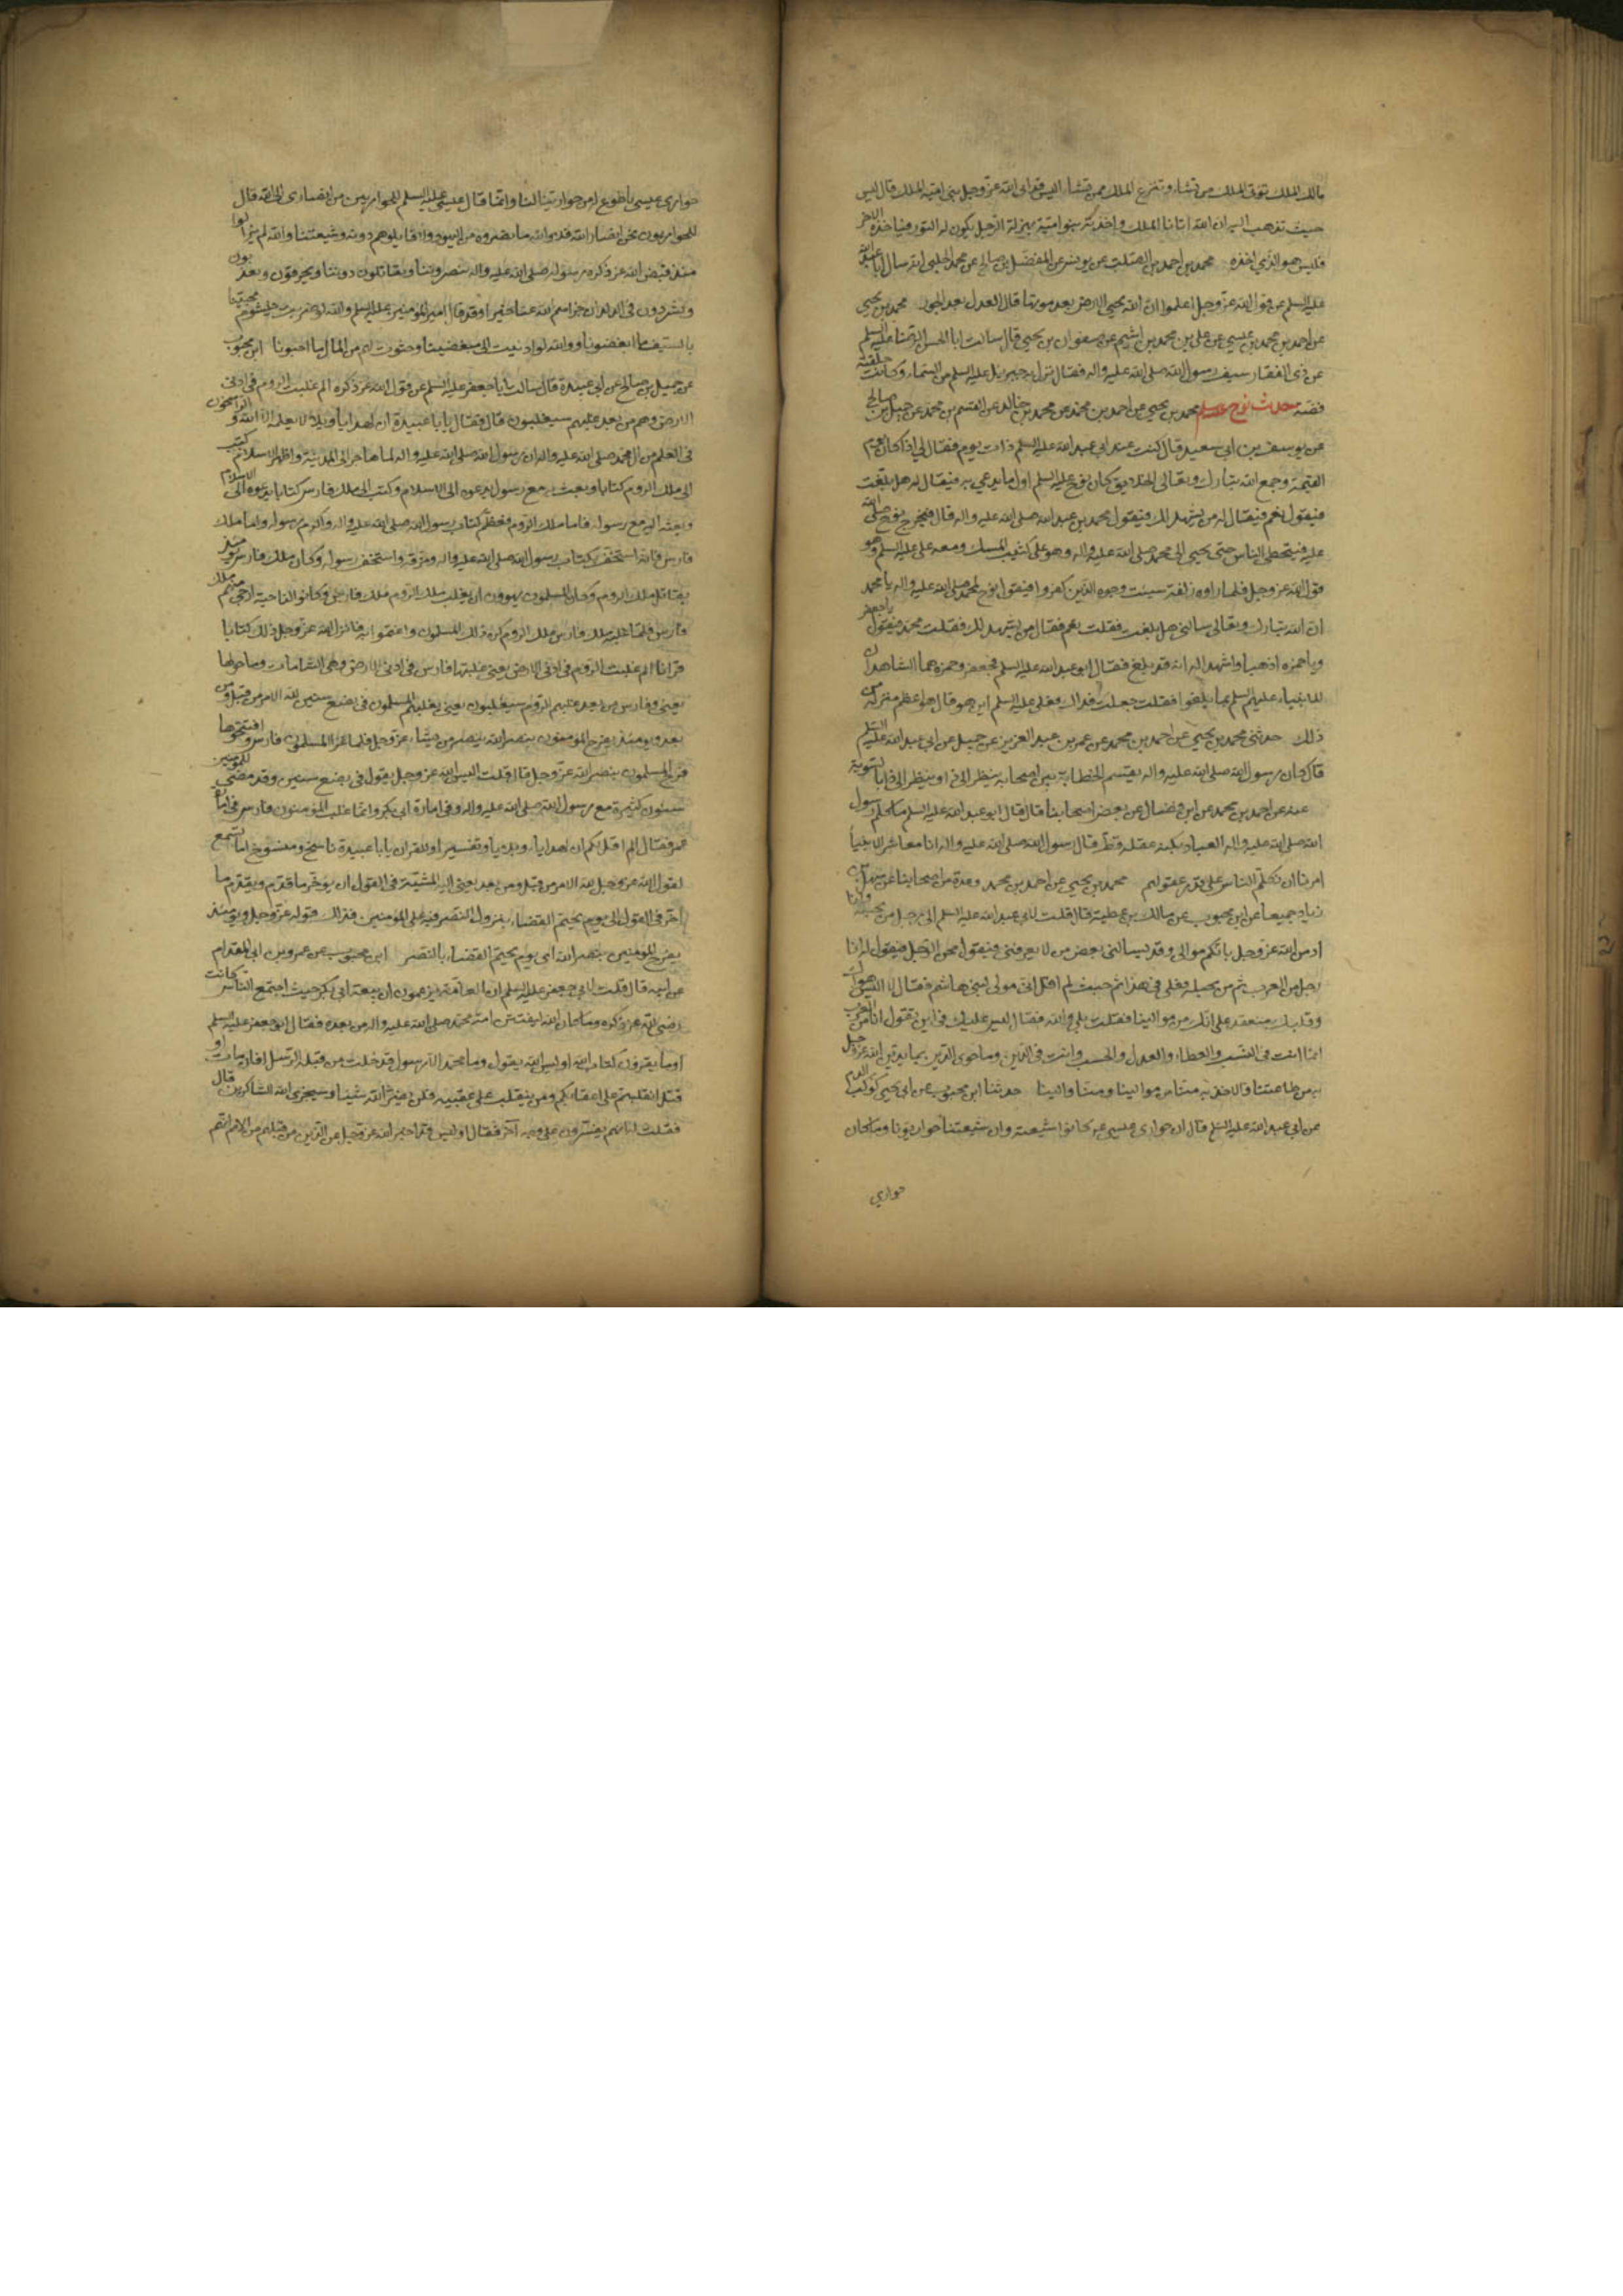 مالك الملك تؤتى الملك من تشاء وتنزع الملك ممن تشاء اليس قد اتى الله عز وجل بنى امية الملك قال ليس
حيث تذهب اليه ان الله اتانا الملك واخذته بنو امية بمنزلة الرجل يكون له الثوب فياخذه الاخر
فليس هو الذي اخذه محمد بن احمد بن الصلت عن يونس عن المفضل بن صالح عن محمد الحلبى انه سال ابا عبد الله
عليه السلم عن قول الله عز وجل اعلموا ان الله يحيى الارض بعد موتها قال العدل بعد الجور محمد بن يحيى
عن احمد بن محمد بن عيسى عن على بن محمد بن اشيم عن صفوان بن يحيى قال سالت ابا الحسن الرضا عليه السلم
عن ذى الفقار سيف رسول الله صلى الله عليه واله فقال نزل به جبرئيل عليه السلم من السماء وكانت حلقته
فضة حديث نوح محمد بن يحيى عن احمد بن محمد عن محمد بن خالد عن القسم بن محمد عن جميل بن صالح
عن يوسف بن ابى سعيد قال كنت عند ابى عبد الله عليه السلم ذات يوم فقال لى اذا كان يوم
القيمة وجمع الله تبارك وتعالى الخلايق كان نوح عليه السلم اول ما يدعى به فيقال له هل بلغت
فيقول نعم فيقال له من يشهد لك فيقول محمد بن عبد الله صلى الله عليه واله قال فيخرج نوح صلى الله
عليه فيتخطى الناس حتى يجيى الى محمد صلى الله عليه واله وهو على كثيب المسك ومعه على عليه السلم وهو
قول الله عز وجل فلما راوه زلفة سيئت وجوه الذين كفروا فيقول نوح لمحمد صلى الله عليه واله يا محمد
ان الله تبارك وتعالى سالنى هل بلغت فقلت نعم فقال من يشهد لك فقلت محمد فيقول يا جعفر
ويا حمزه اذهبا واشهدا له انه قد بلغ فقال ابو عبد الله عليه السلم فجعفر وحمزه هما الشاهدان
للانبياء عليهم السلم بما بلغوا فقلت جعلت فداك فعلى عليه السلم اين هو قال هو اعظم منزلة من
ذلك حدثنى محمد بن يحيى عن احمد بن محمد عن عمر بن عبد العزيز عن جميل عن ابى عبد الله عليه السلم
قال كان رسول الله صلى الله عليه واله يقسم لحظاته بين اصحابه ينظر الى ذا وينظر الى ذا بالسوية
عنه عن احمد بن محمد عن ابن فضال عن بعض اصحابنا قال قال ابو عبد الله عليه السلم ما كلم رسول
الله صلى الله عليه واله العباد بكنه عقله قط قال رسول الله صلى الله عليه واله انا معاشر الانبيا
امرنا ان نكلم الناس على قدر عقولهم محمد بن يحيى عن احمد بن محمد وعدة من اصحابنا عن سهل بن
زياد جميعا عن ابن محبوب عن مالك بن عطية قال قلت لابى عبد الله عليه السلم انى رجل من بجيلة وانا
ادين الله عز وجل بانكم موالى وقد يسالنى بعض من لا يعرفنى فيقول ممن الرجل فيقول له انا
رجل من العرب ثم من بجيلة فعلى فى هذا اثم حيث لم اقل انى مولى لبنى هاشم فقال لا اليس هواك
وقلبك منعقد على انك من موالينا فقلت بلى والله فقال ليس عليك فى ان تقول انا من العرب
انما انت فى النسب والعطاء والعدد والحسب وانت فى الدين وما حوى الدين بما تدين الله عز وجل
به من طاعتنا والاخذ به منا من موالينا ومنا والينا حدثنا ابن محبوب عن ابى يحيى كوكب الدم
عن ابى عبد الله عليه السلم قال ان حوارى عيسى كانوا شيعته وان شيعتنا حواريونا وما كان
حوارى
حوارى عيسى باطوع له من حوارينا لنا وانما قال عيسى عليه السلم للحواريين من انصارى الى الله قال
الحواريون نحن انصار الله فلا والله ما نصروه من اليهود ولا قاتلوهم دونه وشيعتنا والله لم يزالوا
منذ قبض الله عز ذكره رسوله صلى الله عليه واله ينصرونا ويقاتلون دوننا ويحرقون ويعذبون
ويشردون فى البلدان جزاهم الله عنا خيرا وقد قال امير المؤمنين عليه السلم والله لو ضربت خيشوم محبينا
بالسيف ما ابغضونا ووالله لو ادنيت الى مبغضينا وحثوت لهم من المال ما احبونا ابن محبوب
عن جميل بن صالح عن ابى عبيدة قال سالت ابا جعفر عليه السلم عن قول الله عز ذكره الم غلبت الروم فى ادنى
الارض وهم من بعد غلبهم سيغلبون قال فقال يا ابا عبيدة ان لهذا تاويلا لا يعلمه الا الله والراسخون
فى العلم من آل محمد صلى الله عليه واله ان رسول الله صلى الله عليه واله لما هاجر الى المدينة واظهر الاسلام كتب
الى ملك الروم كتابا وبعث به مع رسول يدعوه الى الاسلام وكتب الى ملك فارس كتابا يدعوه الى الاسلام
وبعثه اليه مع رسوله فاما ملك الروم فعظم كتاب رسول الله صلى الله عليه واله واكرم رسوله واما ملك
فارس فانه استخف بكتاب رسول الله صلى الله عليه واله ومزقه واستخف برسوله وكان ملك فارس يومئذ
يقاتل ملك الروم وكان المسلمون يهوون ان يغلب ملك الروم ملك فارس وكانوا لناحيته ارجى منهم لملك
فارس فلما غلب ملك فارس ملك الروم كره ذلك المسلمون واغتموا به فانزل الله عز وجل ذلك كتابا
قرانا الم غلبت الروم فى ادنى الارض يعنى غلبتها فارس فى ادنى الارض وهى الشامات وما حولها
يعنى وفارس من بعد غلبهم الروم سيغلبون يعنى يغلبهم المسلمون فى بضع سنين لله الامر من قبل ومن
بعد ويومئذ يفرح المؤمنون بنصر الله ينصر من يشاء عز وجل فلما غزا المسلمون فارس وافتتحوها
فرح المسلمون بنصر الله عز وجل قال قلت اليس الله عز وجل يقول فى بضع سنين وقد مضى للمؤمنين
سنون كثيرة مع رسول الله صلى الله عليه واله وفى امارة ابى بكر وانما غلب المؤمنون فارس فى امارة
عمر فقال الم اقل لكم ان لهذا تاويلا وتفسيرا وللقران يا ابا عبيدة ناسخ ومنسوخ اما تسمع
لقول الله عز وجل لله الامر من قبل ومن بعد يعنى اليه المشية فى القول ان يؤخر ما قدم ويقدم ما
اخر فى القول الى يوم يحتم القضاء بنزول النصر فيه على المؤمنين فذلك قوله عز وجل ويومئذ
يفرح المؤمنين بنصر الله اى يوم يحتم القضاء بالنصر ابن محبوب عن عمرو بن ابى المقدام
عن ابيه قال قلت لابى جعفر عليه السلم ان العامة يزعمون ان بيعة ابى بكر حيث اجتمع الناس كانت
رضى لله عز ذكره وما كان الله ليفتن امة محمد صلى الله عليه واله من بعده فقال ابو جعفر عليه السلم
اوما يقرون كتاب الله اوليس الله يقول وما محمد الا رسول قد خلت من قبله الرسل افان مات او
قتل انقلبتم على اعقابكم ومن ينقلب على عقبيه فلن يضر الله شيئا وسيجزى الله الشاكرين قال
فقلت له انهم يفسرون على وجه آخر فقال اوليس قد اخبر الله عز وجل عن الذين من قبلهم من الامم انهم